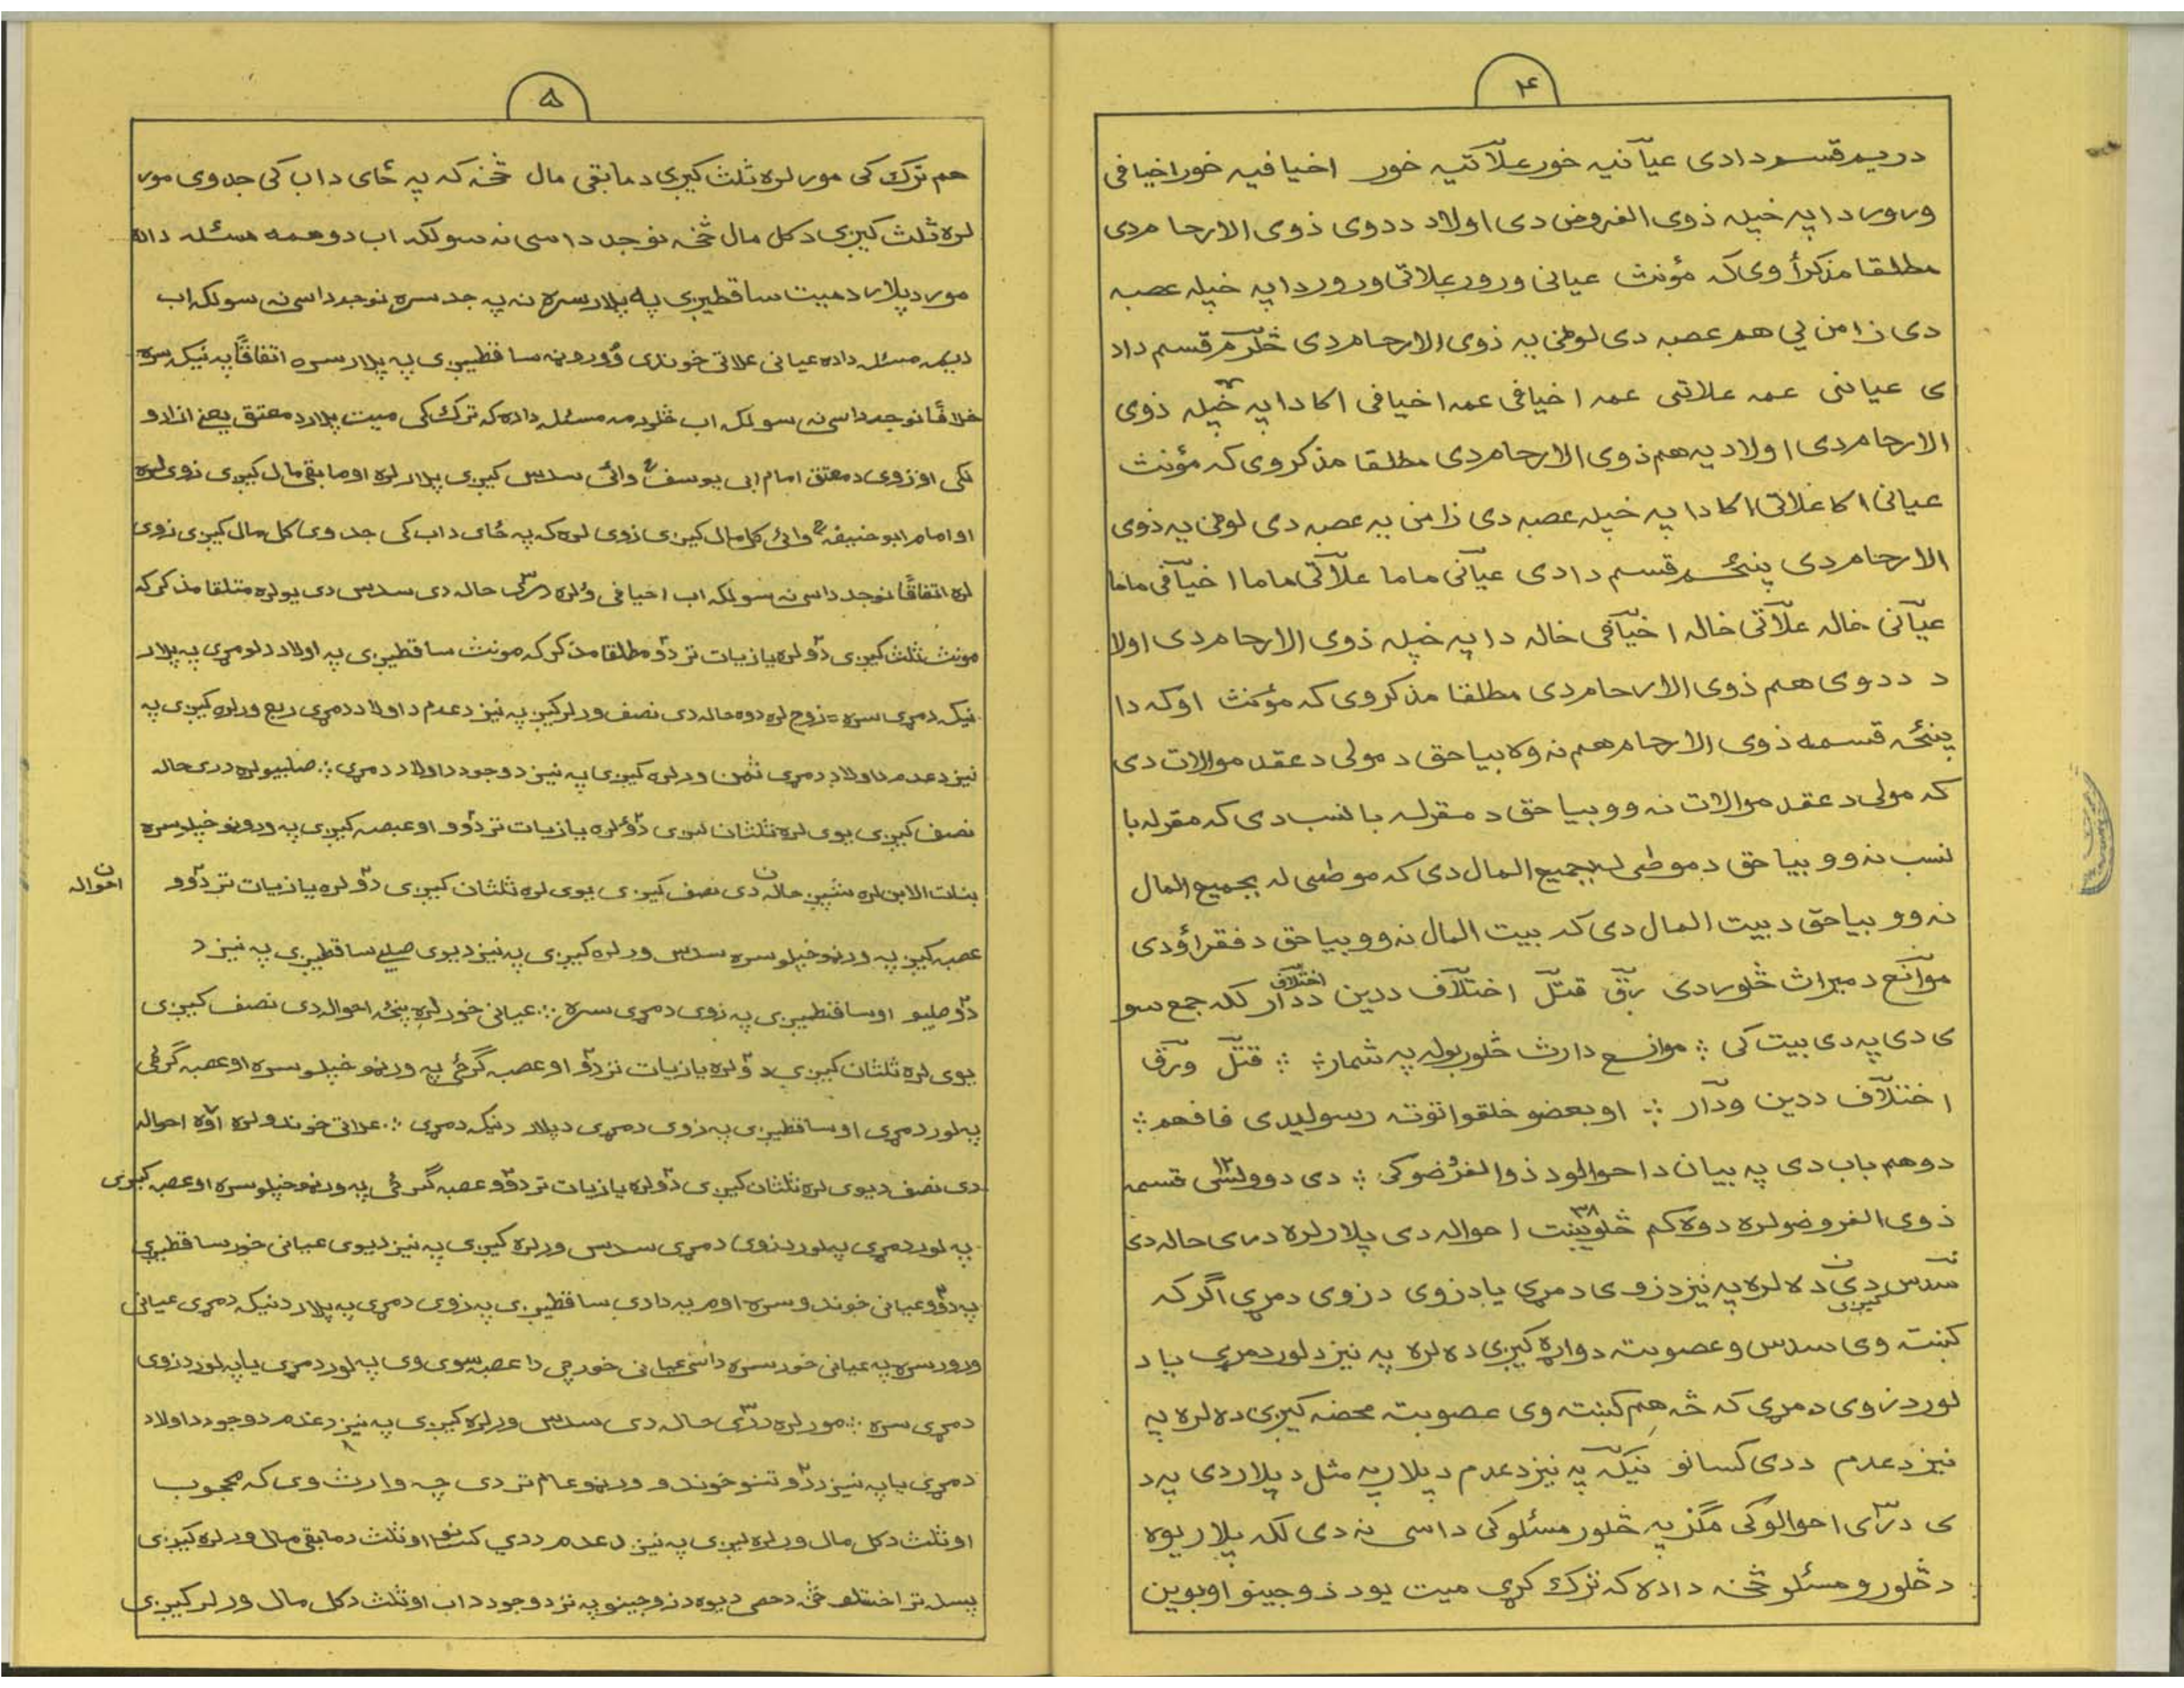 ۴
دریم قسم دا دی عیاّنیه خور علاّتیه خور اخیافیه خور اخیافی
ورور دا په خپله ذوی الفروض دی اولاد ددوی ذوی الارحام دی
مطلقا مذکرأ وی که مؤنث عیانی ورور علاتی ورور دا په خپله عصبه
دی زامن یی هم عصبه دی لوڼی یه ذوی الارحام دی څلرم قسم داد
ی عیانی عمه علاتی عمه اخیافی عمه اخیافی اکا دا په خپله ذوی
الارحام دی اولاد یه هم ذوی الارحام دی مطلقا مذکر وی که مؤنث
عیانی اکا علاتی اکا دا په خپله عصبه دی زامن یه عصبه دی لوڼی یه ذوی
الارحام دی پنځم قسم دا دی عیاّنی ماما علاّتی ماما اخیاّفی ماما
عیاّنی خاله علاّتی خاله اخیاّفی خاله دا په خپله ذوی الارحام دی اولا
د ددوی هم ذوی الارحام دی مطلقا مذکر وی که مؤنث او که دا
پنځه قسمه ذوی الارحام هم نه وه بیا حق د مولی د عقد موالات دی
که مولی د عقد موالات نه وو بیا حق د مقرله بالنسب دی که مقرله با
لنسب نه وو بیا حق د موطی له بجمیع المال دی که موطی له بجمیع المال
نه وو بیا حق د بیت المال دی که بیت المال نه وو بیا حق د فقراؤ دی
موانع د میراث څلور دی رق قتل اختلاف ددین اختلاف ددار لکه جمع سو
ی دی په دی بیت کی ؞ موانع دارث څلور بوله په شمار ؞ ؞ قتل ورق
اختلاف ددین ودار ؞ او بعضو خلقو اتوته رسولیدی فافهم ؞
دوهم باب دی په بیان د احوالو د ذوالفرُضو کی ؞ دی دوولسّی ۱۲ قسمه
ذوی الفروضو لره دوه کم څلویښت ۳۸ احواله دی پلار لره دری حاله دی
سدس دی کیږی ده لره په نیز د زوی د مړی یا د زوی د زوی د مړی اگر که
کښته وی سدس وعصوبته دواړه کیږی ده لره په نیز د لور د مړی یا د
لور د زوی د مړی که څه هم کښته وی عصوبته محضه کیږی ده لره په
نیز د عدم ددی کسانو نیکه په نیز د عدم د پلار په مثل د پلار دی په د
ی دری ۳ احوالو کی مگز په څلور مسئلو کی داسی نه دی لکه پلار یوه
د څلورو مسئلو څخه داده که ترک کړی میت یو د زوجینو او بوین
۵
هم ترک کی مور لره ثلث کیږی د مابقی مال څخه که په ځای داب کی جد وی مور
لره ثلث کیږی د کل مال څخه نو جد داسی نه سو لکه اب دوهمه مسئله داده
مور د پلار د میت ساقطیږی په پلار سره نه په جد سره نو جد داسی نه سو لکه اب
دیمه مسئله داده عیانی علاتی خوندی ورورونه ساقطیږی په پلار سره اتفاقًا په نیکه سره
خلافًا نو جد داسی نه سو لکه اب څلورمه مسئله داده که ترک کی میت پلار د معتق یعنی ازادو
لکی او زوی د معتق امام ابی یوسف وائی سدس کیږی پلار لره او مابقی مال کیږی زوی لره
او امام ابوحنیفه وائی کل مال کیږی زوی لره که په ځای داب کی جد وی کل مال کیږی زوی
لره اتفاقًا نو جد داسی نه سو لکه اب اخیافی لره دری ۳ حاله دی سدس دی یو لره متلقا مذکر که
مونث ثلث کیږی دوّ لره یا زیات تر دوّ مطلقا مذکر که مونث ساقطیږی په اولاد د لومړی په پلار
نیکه د مړی سره = زوج لره دوه حاله دی نصف ورلر کیږ په نیز د عدم د اولاد د مړی ربع ورلره کیږی په
نیز د عدم د اولاد د مړی ثمن ورلره کیږی په نیز د وجود د اولاد د مړی ؞ صلبیو لره دری حاله
نصف کیږی یوی لره ثلثان کیږی دوّ لره یا زیات تر دوّو او عبصه کیږی په ورونو خپلو سره
بنات الابن لره شپږ حاله دی نصف کیږی یوی لره ثلثان کیږی دوّ لره یا زیات تر دوّو
احواله
عصبه کیږ په ورنو خپلو سره سدس ورلره کیږی په نیز د یوی صلبی ساقطیږی په نیز د
دوّ صلبیو او ساقطیږی په زوی د مړی سره ؞ عیانی خور لره پنځه احواله دی نصف کیږی
یوی لره ثلثان کیږی دوّ لره یا زیات تر دوّ او عصبه گرځی په ورنو خپلو سره او عصبه گرځی
په لور د مړی او ساقطیږی په زوی د مړی د پلار د نیکه د مړی ؞ علاتی خوندو لره اوّه احواله
دی نصف د یوی لره ثلثان کیږی دوّ لره یا زیات تر دوّو عصبه گرځی په ورنو خپلو سره او عصبه کیږی
په لور د مړی په لور د زوی د مړی سدس ورلره کیږی په نیز د یوی عیانی خور ساقطیږی
په دوّو عیانی خوندو سره او په دادی ساقطیږی په زوی د مړی په پلار د نیکه د مړی عیانی
ورور سره په عیانی خور سره داسی عیانی خور چی دا عصبه سوی وی په لور د مړی یا په لور د زوی
د مړی سره ؞ مور لره دری ۳ حاله دی سدس ورلره کیږی په نیز د عدم د وجود د اولاد
د مړی یا په نیز د دوّ تنو خوندو ورنو عام تر دی چه وارث وی که محجوب
او ثلث د کل مال ورلره کیږی په نیز د عدم ددی کسانو او ثلث د مابقی مال ورلره کیږی
پسله تر اخستلو د حصی د یوه د زوجینو په نزد وجود داب او ثلث د کل مال ورلر کیږی